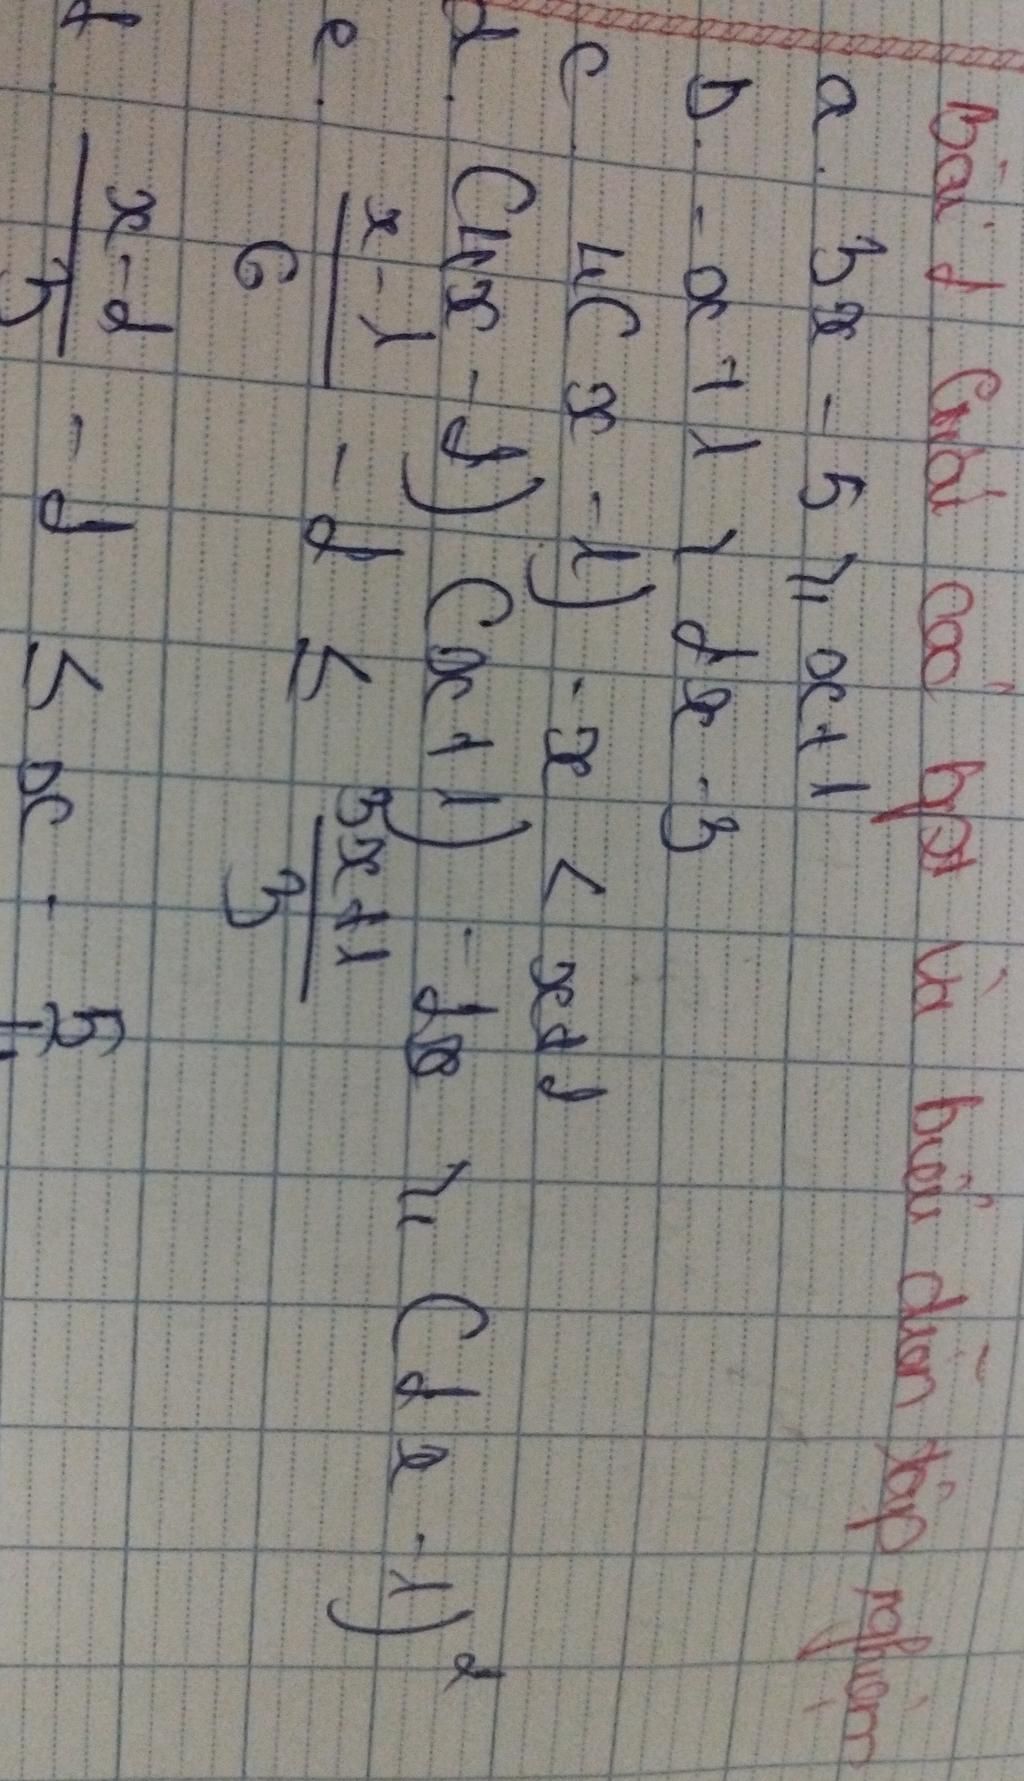 Bài 2 Giải các bpt và biểu diễn tập nghiệm
a. 3x - 5 ≥ x+1
b. -x+1 > 2x-3
c. 4(x-1) -x < x+2
d. (4x-2)(x+1) - 2x ≥ (2x-1)²
e. (x-1)/6 - 2 ≤ (3x+1)/3
f (x-2)/3 - 2 ≤ x - 5/4